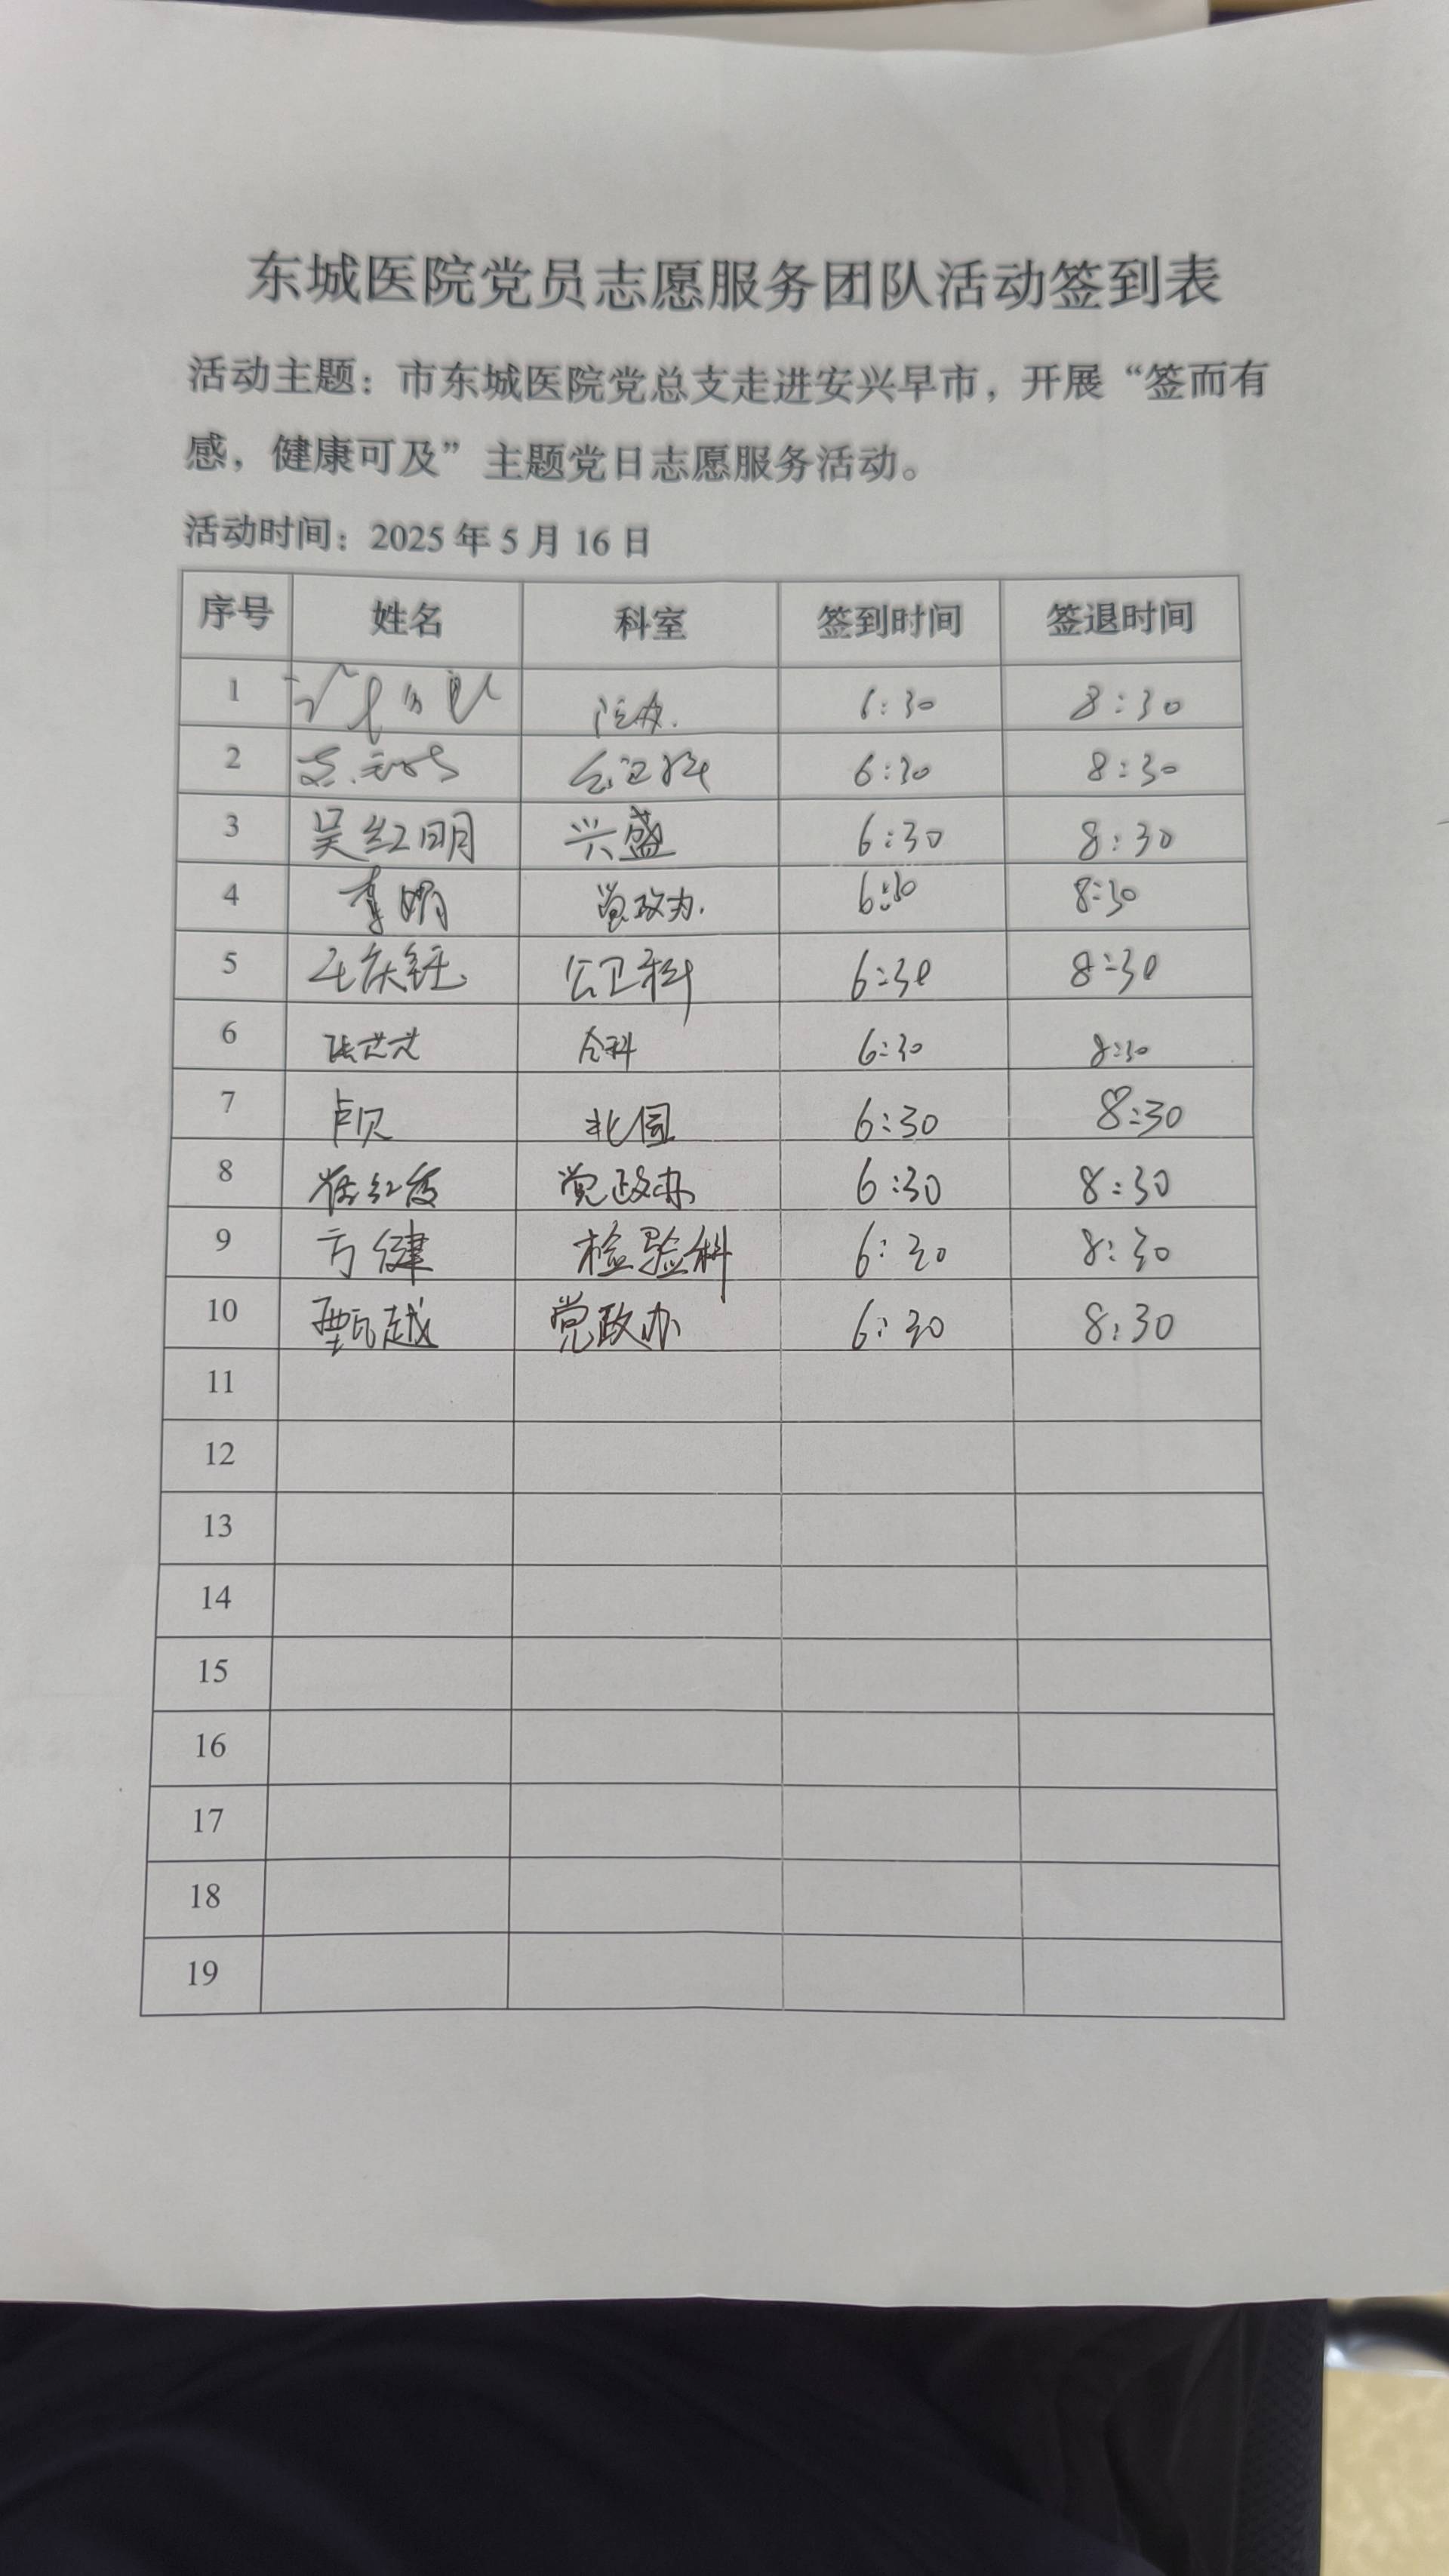 东城医院党员志愿服务团队活动签到表
活动主题：市东城医院党总支走进安兴早市，开展“签而有
感，健康可及”主题党日志愿服务活动。
活动时间：2025年5月16日
序号 姓名 科室 签到时间 签退时间
1 院办. 6:30 8:30
2 公卫科 6:30 8:30
3 吴红明 兴盛 6:30 8:30
4 李娟 党政办. 6:30 8:30
5 公卫科 6:30 8:30
6 张芃芃 全科 6:30 8:30
7 卢贝 北园 6:30 8:30
8 党政办 6:30 8:30
9 方健 检验科 6:30 8:30
10 甄越 党政办 6:30 8:30
11
12
13
14
15
16
17
18
19